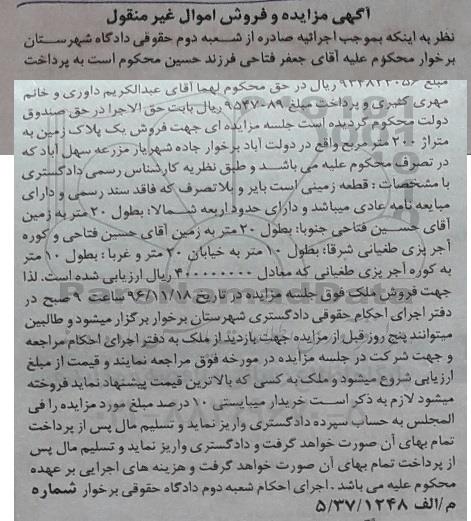 آگهی مزایده و فروش اموال غیر منقول
نظر به اینکه بموجب اجرائیه صادره از شعبه دوم حقوقی دادگاه شهرستان
برخوار محکوم علیه آقای جعفر فتاحی فرزند حسین محکوم است به پرداخت
مبلغ ریال در حق محکوم لهما آقای عبدالکریم داوری و خانم
مهری کثیری و پرداخت مبلغ ریال بابت حق الاجرا در حق صندوق
دولت محکوم گردیده است جلسه مزایده ای جهت فروش یک پلاک زمین به
متراژ ۲۰۰ متر مربع واقع در دولت آباد برخوار جاده شهریار مزرعه سهل آباد که
در تصرف محکوم علیه می باشد و طبق نظریه کارشناس رسمی دادگستری
با مشخصات : قطعه زمینی است بایر و بلاتصرف که فاقد سند رسمی و دارای
مبایعه نامه عادی میباشد و دارای حدود اربعه شمالا: بطول ۲۰ متر به زمین
آقای حسین فتاحی جنوبا: بطول ۲۰ متر به زمین آقای حسین فتاحی و کوره
آجر پزی طغیانی شرقا: بطول ۱۰ متر به خیابان ۲۰ متر و غربا : بطول ۱۰ متر
به کوره آجر پزی طغیانی که معادل ۴۰۰۰۰۰۰۰۰ ریال ارزیابی شده است. لذا
جهت فروش ملک فوق جلسه مزایده در تاریخ ۹۶/۱۱/۱۸ ساعت ۹ صبح در
دفتر اجرای احکام حقوقی دادگستری شهرستان برخوار برگزار میشود و طالبین
میتوانند پنج روز قبل از مزایده جهت بازدید از ملک به دفتر اجرای احکام مراجعه
و جهت شرکت در جلسه مزایده در مورخه فوق مراجعه نمایند و قیمت از مبلغ
ارزیابی شروع میشود و ملک به کسی که بالاترین قیمت پیشنهاد نماید فروخته
میشود لازم به ذکر است خریدار میبایستی ۱۰ درصد مبلغ مورد مزایده را فی
المجلس به حساب سپرده دادگستری واریز نماید و تسلیم مال پس از پرداخت
تمام بهای آن صورت خواهد گرفت و دادگستری واریز نماید و تسلیم مال پس
از پرداخت تمام بهای آن صورت خواهد گرفت و هزینه های اجرایی بر عهده
محکوم علیه می باشد . اجرای احکام شعبه دوم دادگاه حقوقی برخوار شماره
م/الف ۵/۳۷/۱۲۴۸